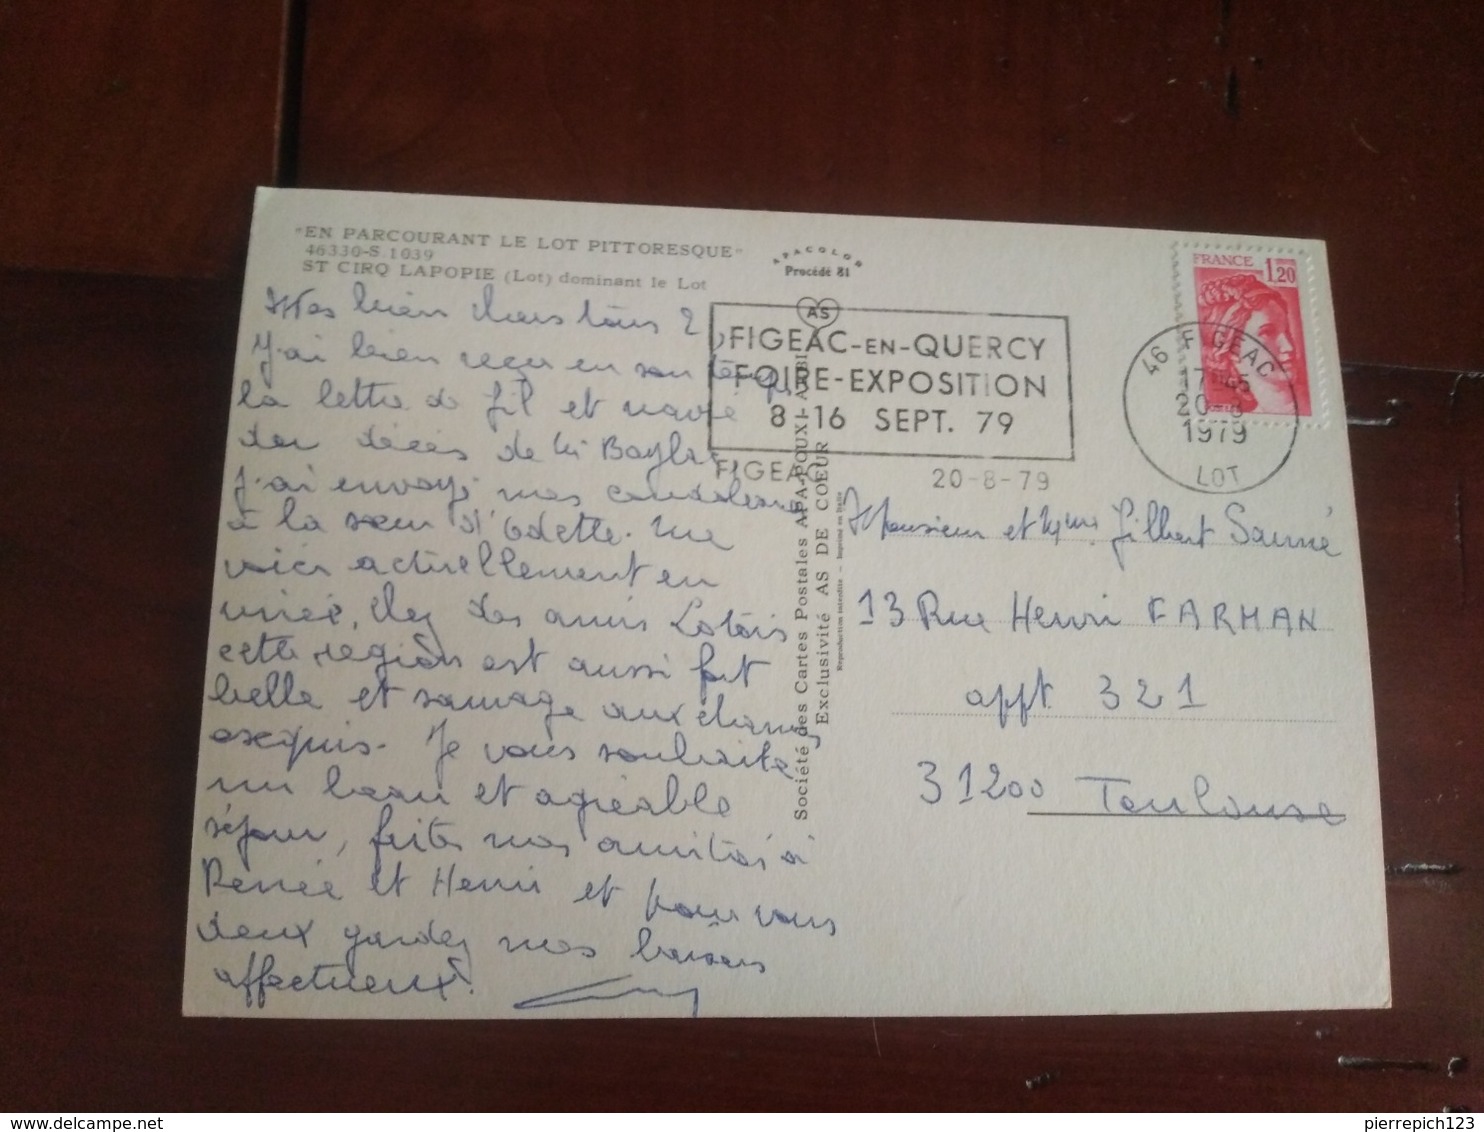 "EN PARCOURANT LE LOT PITTORESQUE"
46330-S.1039
ST CIRQ LAPOPIE (Lot) dominant le Lot
APACOLOR
Procédé 81
AS
FRANCE 1,20
FIGEAC-EN-QUERCY
FOIRE-EXPOSITION
8-16 SEPT. 79
FIGEAC 20-8-79
46 FIGEAC
17H45
20-8
1979
LOT
Mes bien chers tous 2,
J'ai bien reçu en son temps
la lettre de Gil et navré
des décès de Mr Bayle
j'ai envoyé mes condoléances
à la sœur d'Odette. Me
voici actuellement en
virée, chez des amis Lotois
cette région est aussi fort
belle et sauvage aux charmes
exquis. Je vous souhaite
un beau et agréable
séjour, faites mes amitiés à
Renée et Henri et pour vous
deux gardez mes baisers
affectueux.
Société des Cartes Postales APA-POUX - ALBI
Exclusivité AS DE COEUR
Reproduction interdite - Imprimé en Italie
Monsieur et Mme Gilbert
13 Rue Henri FARMAN
appt 321
31200 Toulouse
pierrepich123